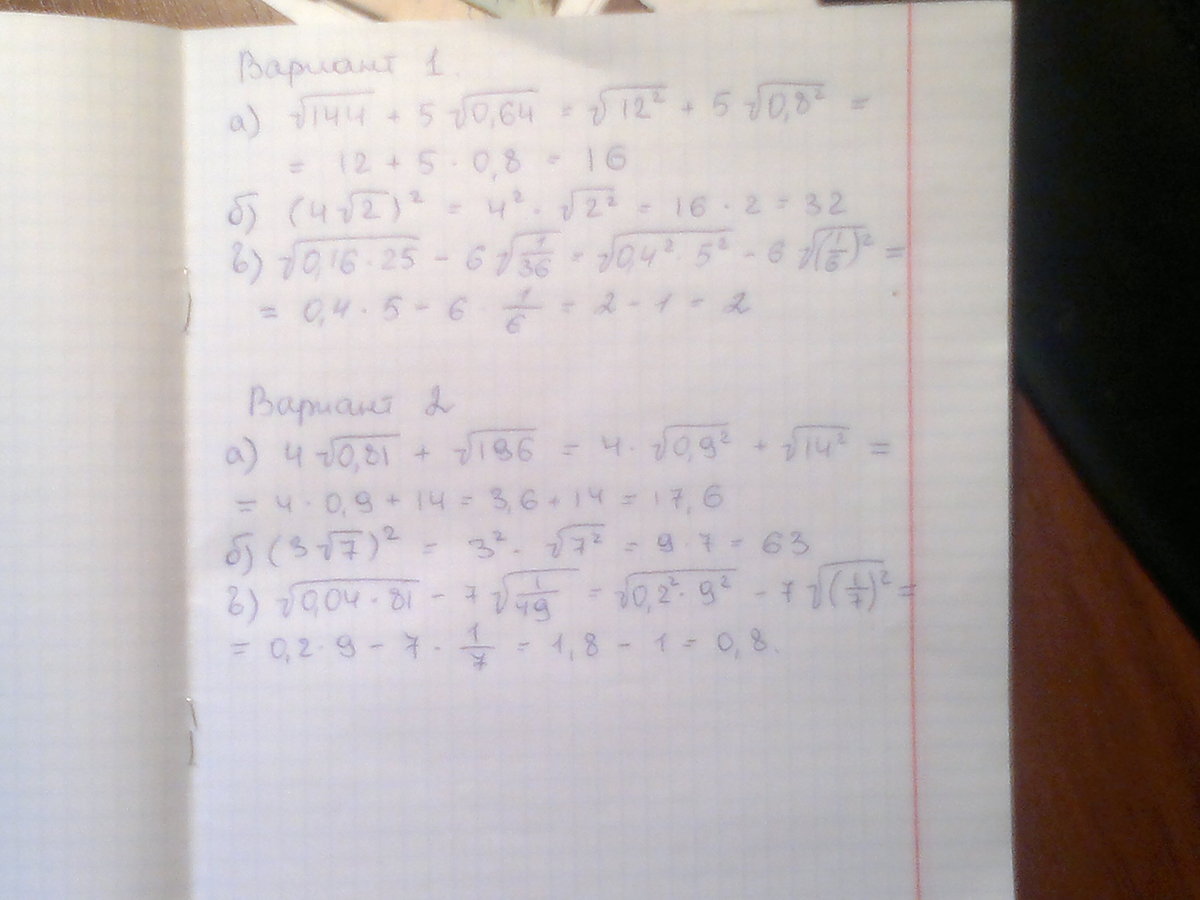 Вариант 1.
а) √144 + 5 √0,64 = √12² + 5 √0,8² =
= 12 + 5 · 0,8 = 16
б) (4√2)² = 4² · √2² = 16 · 2 = 32
в) √0,16 · 25 - 6 √1/36 = √0,4² · 5² - 6 √(1/6)² =
= 0,4 · 5 - 6 · 1/6 = 2 - 1 = 2
Вариант 2
а) 4 √0,81 + √196 = 4 · √0,9² + √14² =
= 4 · 0,9 + 14 = 3,6 + 14 = 17,6
б) (3√7)² = 3² · √7² = 9 · 7 = 63
в) √0,04 · 81 - 7 √1/49 = √0,2² · 9² - 7 √(1/7)² =
= 0,2 · 9 - 7 · 1/7 = 1,8 - 1 = 0,8.